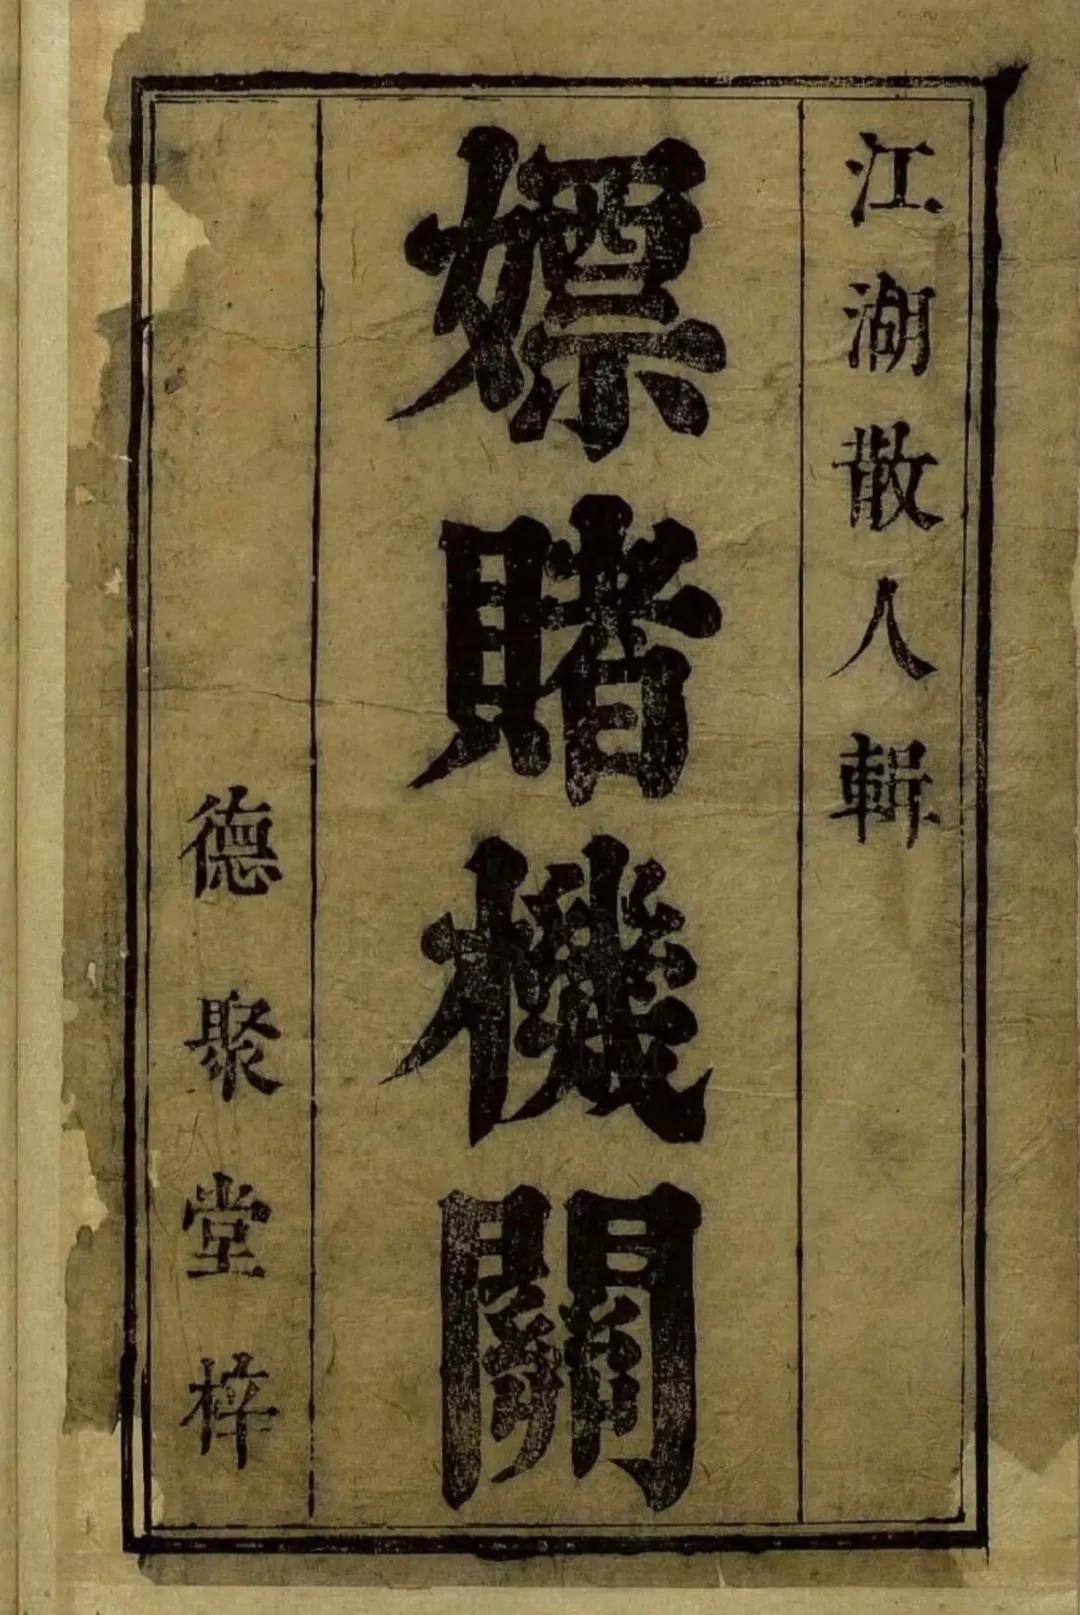 江湖散人輯
嫖賭機關
德聚堂梓